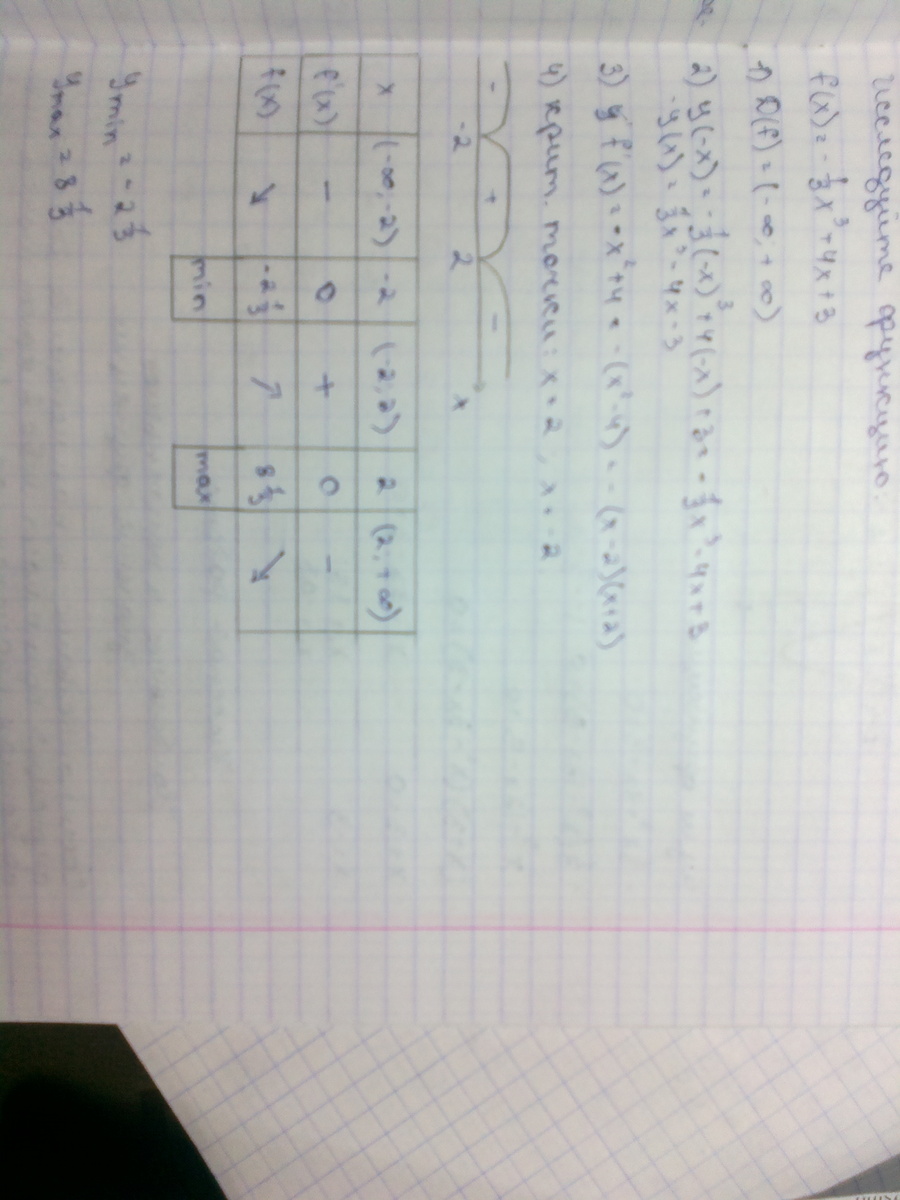 Исследуйте функцию:
f(x) = -1/3x³ + 4x + 3
1) D(f) = (-∞; +∞)
2) y(-x) = -1/3(-x)³ + 4(-x) + 3 = -1/3x³ - 4x + 3
-y(x) = 1/3x³ - 4x - 3
3) f'(x) = -x² + 4 = -(x² - 4) = -(x - 2)(x + 2)
4) крит. точки: x = 2, x = -2
- + -
-2 2 x
x (-∞; -2) -2 (-2; 2) 2 (2; +∞)
f'(x) - 0 + 0 -
f(x) ↘ -2 1/3 ↗ 8 1/3 ↘
min max
y min = -2 1/3
y max = 8 1/3